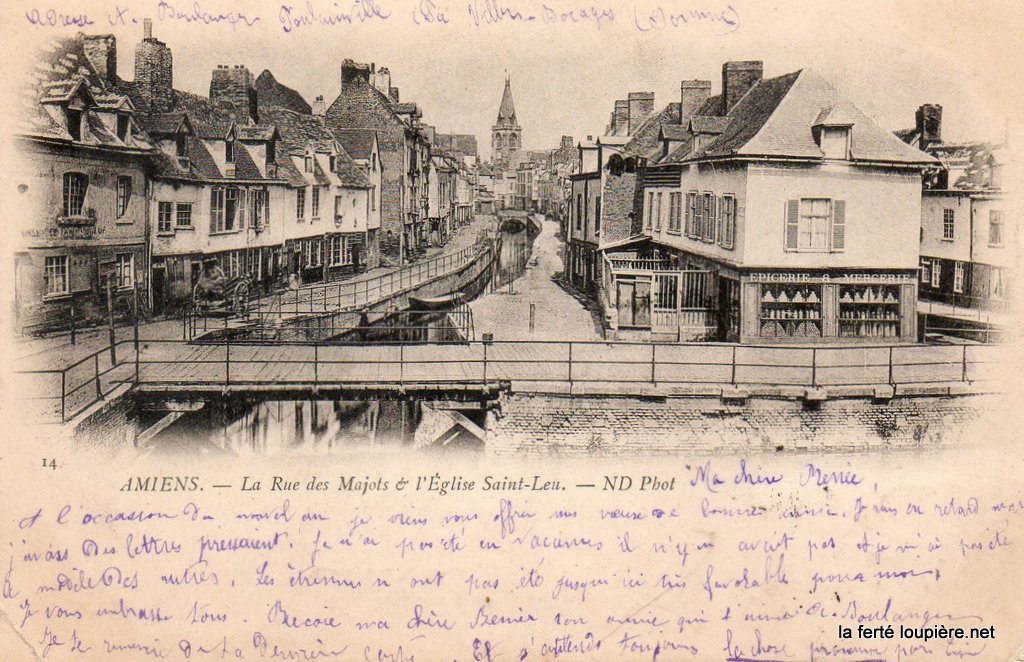 Adresse A. Boulanger (Somme)
ÉPICERIE MERCERIE
14
AMIENS. — La Rue des Majots & l'Église Saint-Leu. — ND Phot
Ma chère Renée,
A l'occasion du nouvel an je viens vous offrir mes bonne année. Je suis en retard mais
j'avais des lettres pressaient. Je n'ai pas été en vacances il n'y en avait pas. et je n'ai pas été
le modèle des autres. Les étrennes n ont pas été jusqu'ici très favorable pour moi.
Je vous embrasse tous. Reçoie ma chère Renée ton amie qui t'aime A. Boulanger
Je te remercie de ta dernière carte. Et j'attends toujours la chose promise
la ferté loupière.net